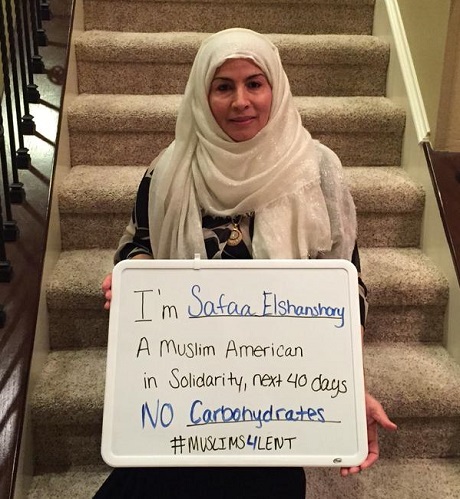 I'm Safaa Elshanshory
A Muslim American
in Solidarity, next 40 days
NO Carbohydrates
#MUSLIMS4LENT